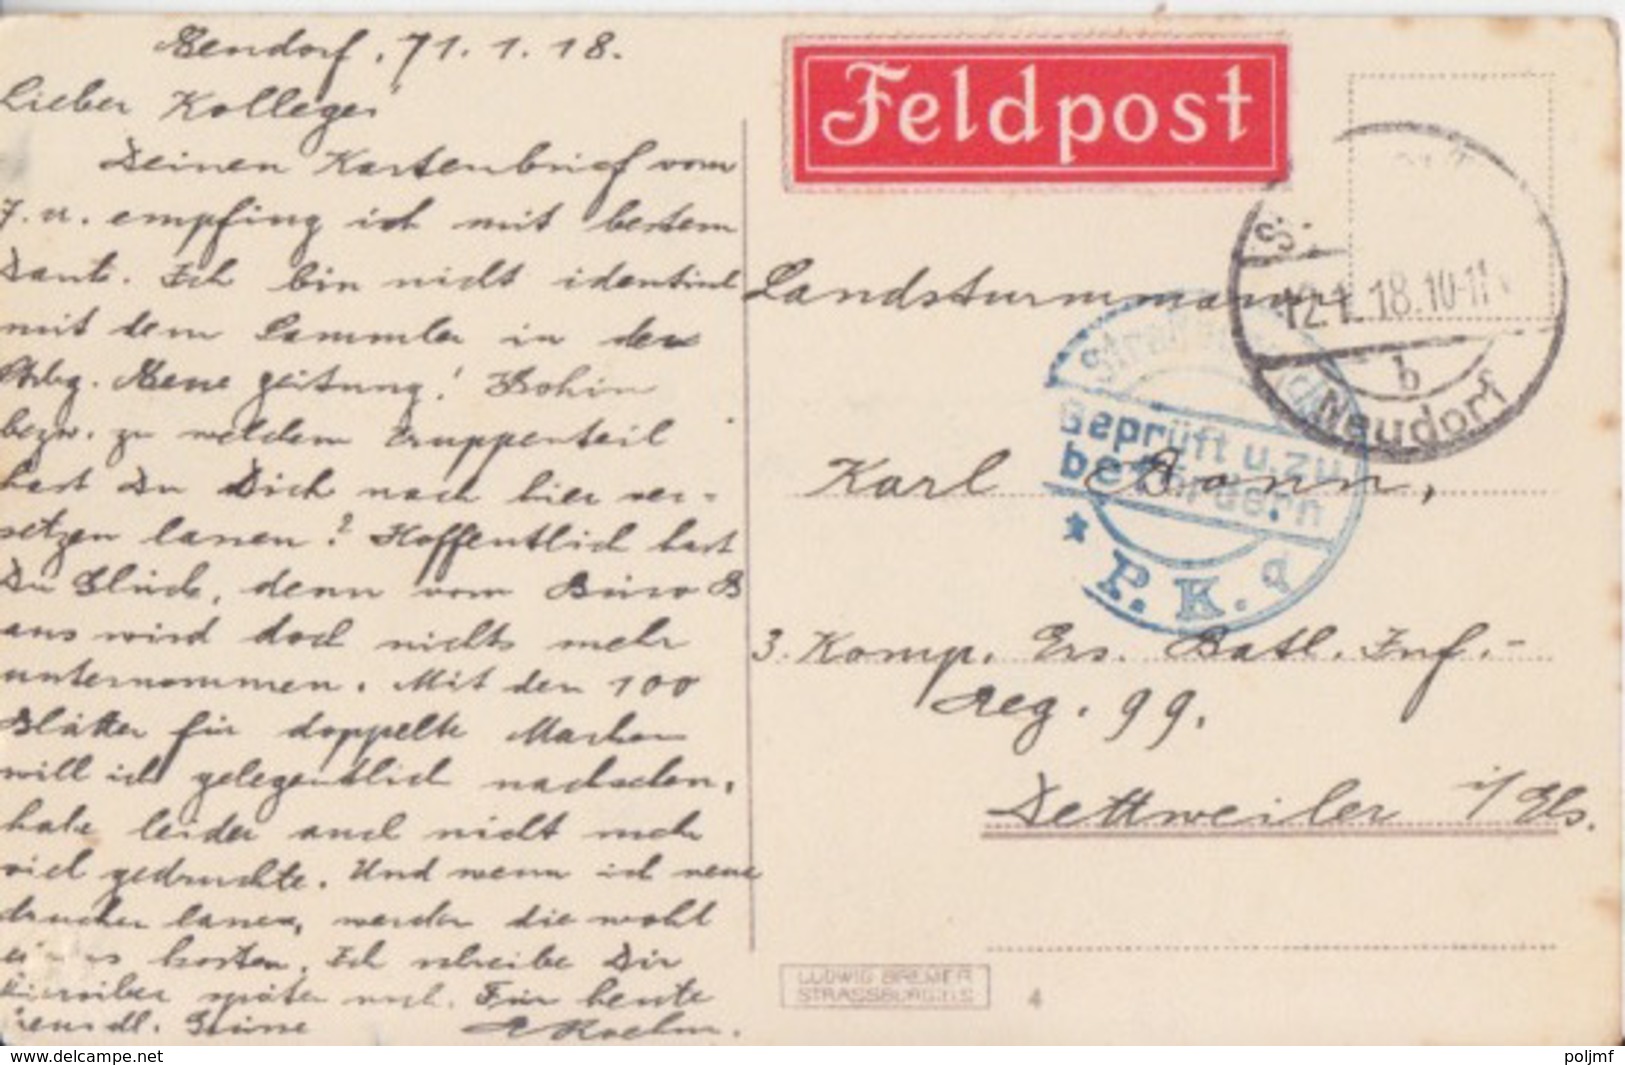 Neudorf, 11.1.18.
Lieber Kollege!
Deinen Kartenbrief vom
7. u. empfing ich mit bestem
Dank. Ich bin nicht identisch
mit dem Sammler in der
Strbg. Neue Zeitung! Wohin
bezw. zu welchem Truppenteil
hast Du Dich nach hier ver-
setzen lassen? Hoffentlich hast
Du Glück, denn vom Büro B
aus wird doch nichts mehr
unternommen. Mit den 100
Blätter für doppelte Marken
will ich gelegentlich nachsehen,
habe leider auch nicht mehr
viel gedruckte. Und wenn ich neue
drucken lasse, werden die wohl
kosten. Ich schreibe Dir
hierüber später noch. Für heute
freundl. Grüsse
Feldpost
S.
12.1.18.10-11
b
Neudorf
Geprüft u. zu
befördern
* P.K.
Landsturmmann
Karl Bonn,
3. Komp. Ers. Batl. Inf.-
Reg. 99.
Dettweiler i/Els.
LUDWIG BREMER
STRASSBURG I.S
4
www.delcampe.net
poljmf